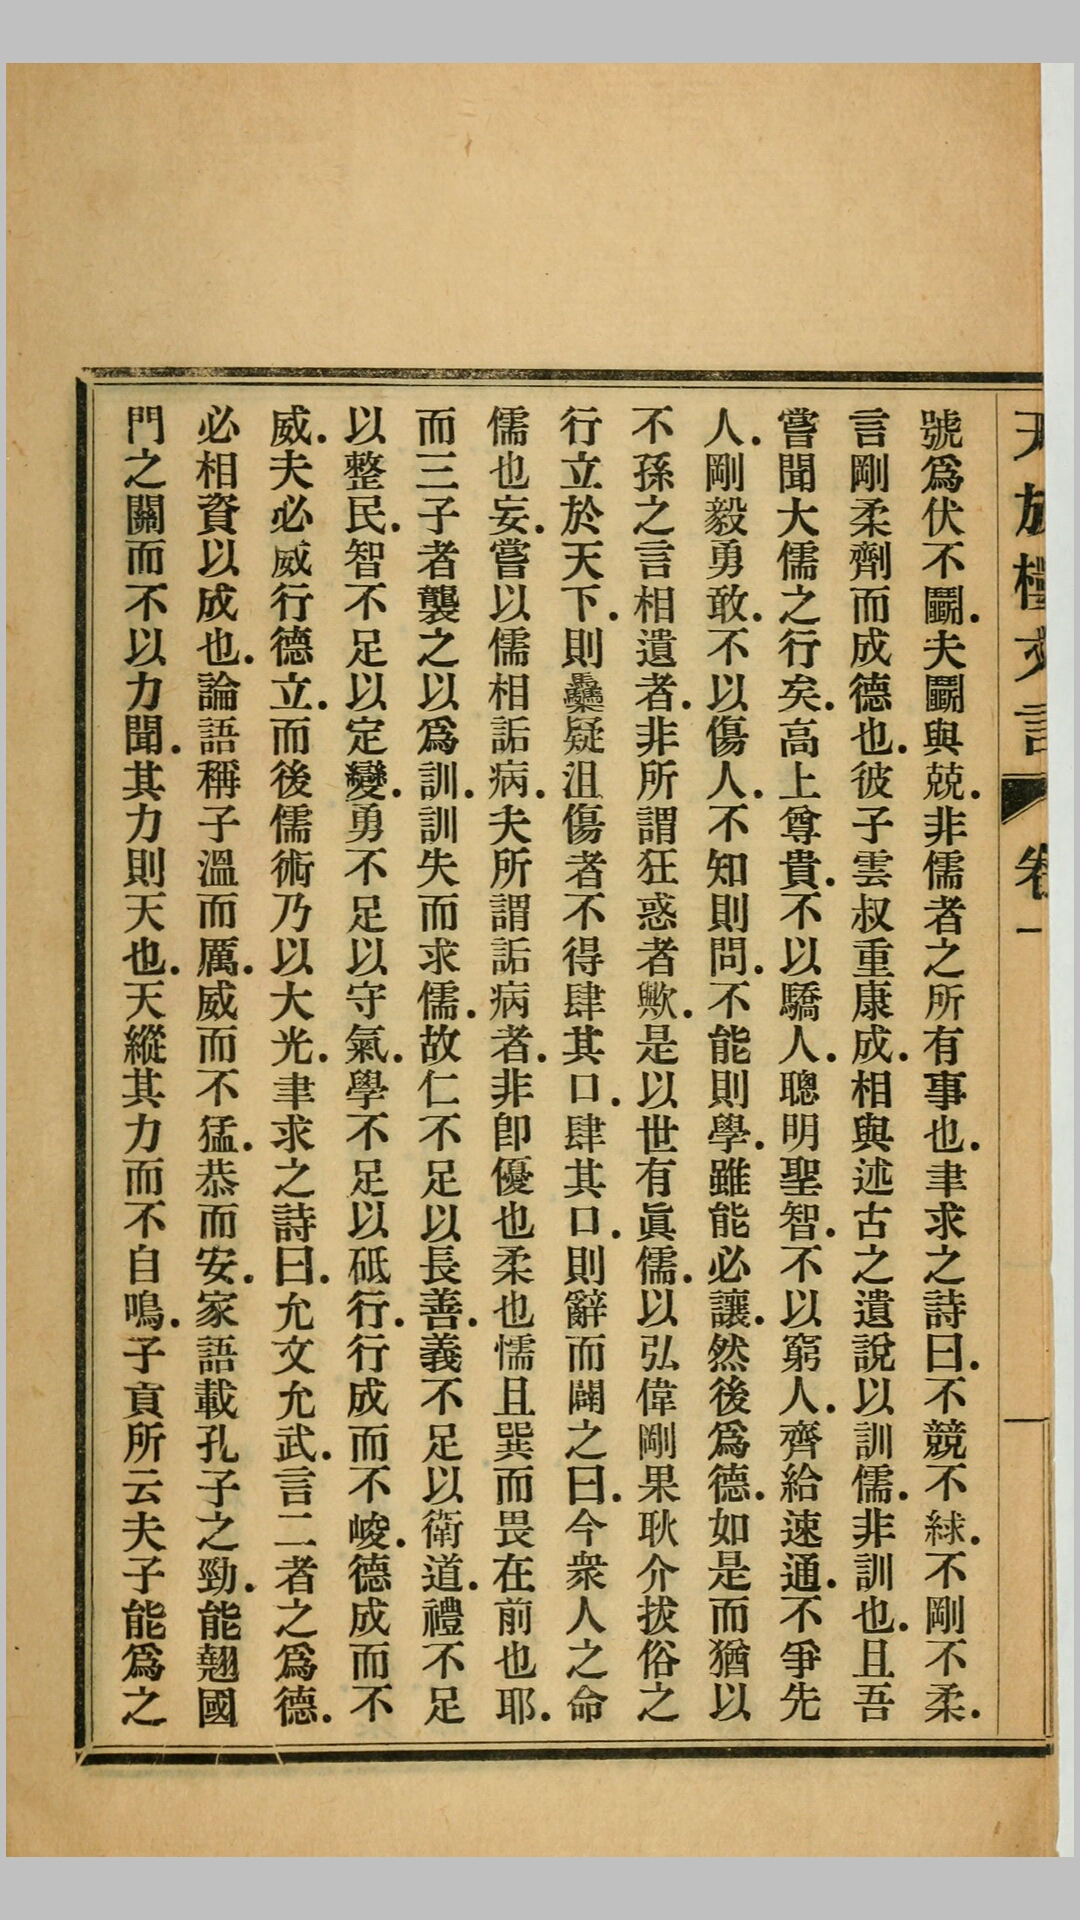 天放樓文言 卷一 一
號爲伏不鬭.夫鬭與兢.非儒者之所有事也.聿求之詩曰.不競不絿.不剛不柔.
言剛柔劑而成德也.彼子雲叔重康成.相與述古之遺說以訓儒.非訓也.且吾
嘗聞大儒之行矣.高上尊貴.不以驕人.聰明聖智.不以窮人.齊給速通.不爭先
人.剛毅勇敢.不以傷人.不知則問.不能則學.雖能必讓.然後爲德.如是而猶以
不孫之言相遺者.非所謂狂惑者歟.是以世有眞儒.以弘偉剛果耿介拔俗之
行立於天下.則蠱疑沮傷者不得肆其口.肆其口.則辭而闢之曰.今衆人之命
儒也妄.嘗以儒相詬病.夫所謂詬病者.非卽優也柔也懦且巽而畏在前也耶.
而三子者襲之以爲訓.訓失而求儒.故仁不足以長善.義不足以衛道.禮不足
以整民.智不足以定變.勇不足以守氣.學不足以砥行.行成而不峻.德成而不
威.夫必威行德立.而後儒術乃以大光.聿求之詩曰.允文允武.言二者之爲德.
必相資以成也.論語稱子溫而厲.威而不猛.恭而安.家語載孔子之勁.能翹國
門之關而不以力聞.其力則天也.天縱其力而不自鳴.子貢所云夫子能爲之